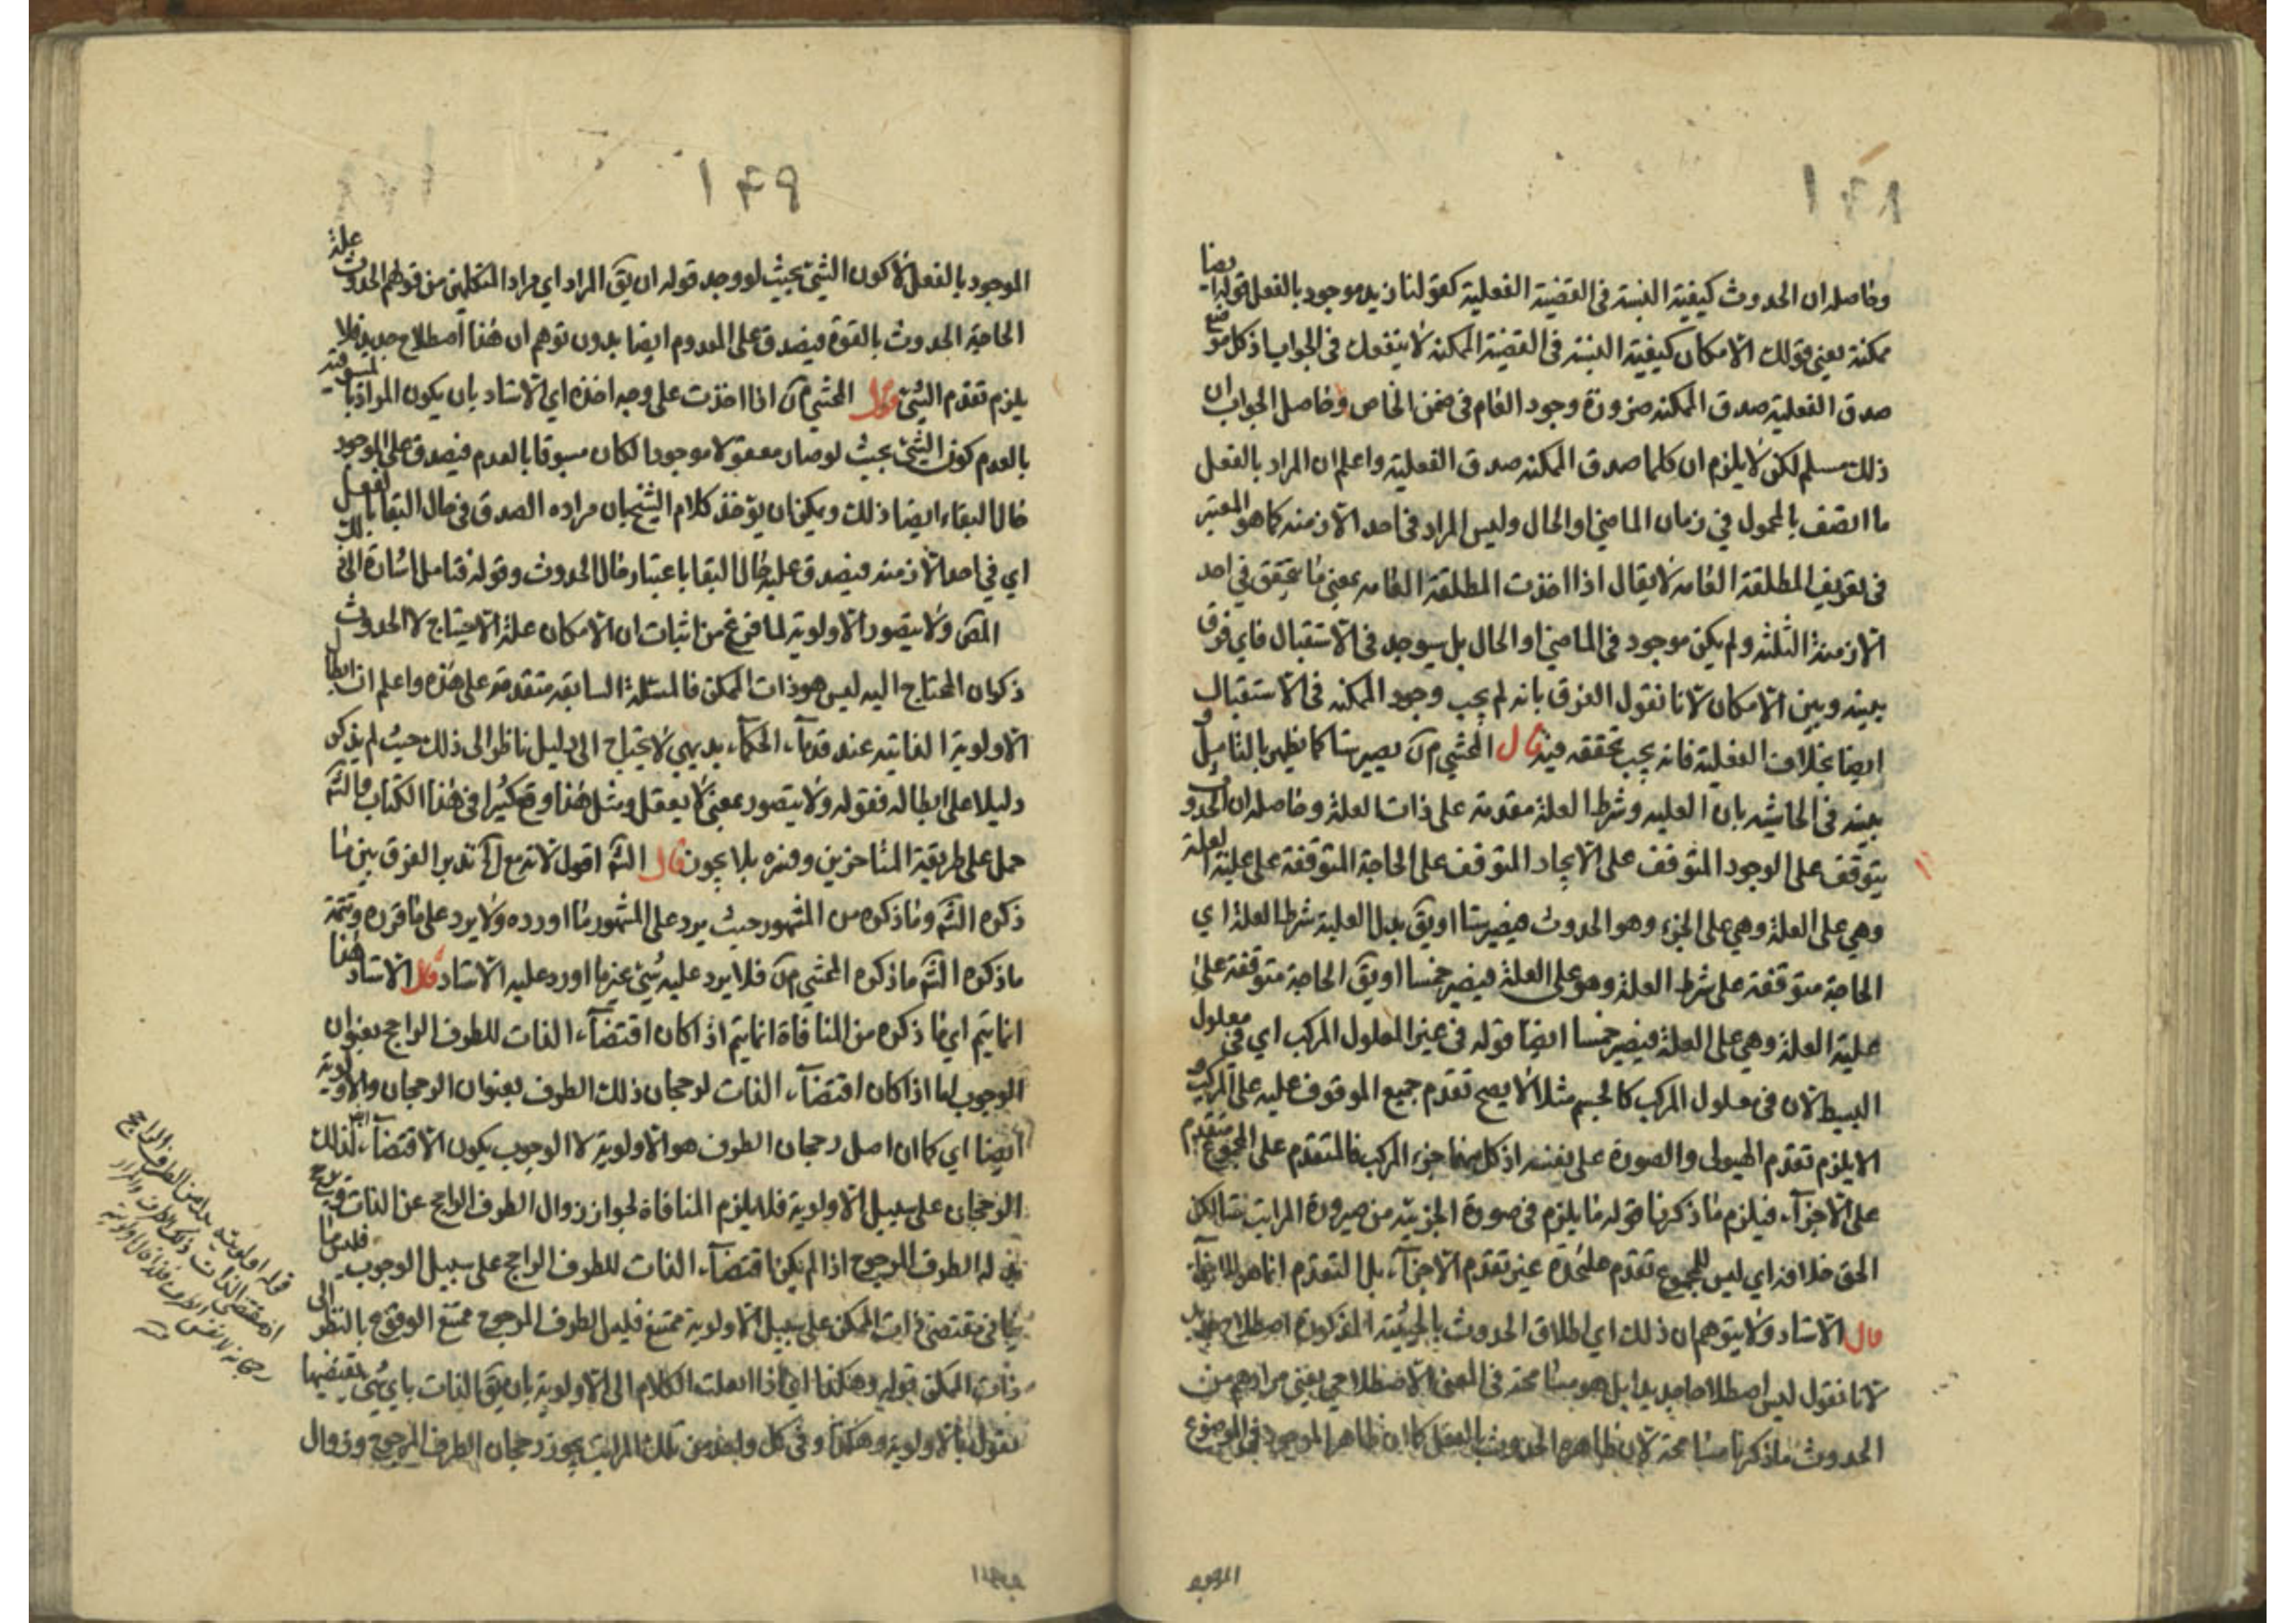 ١٤٨
وحاصله ان الحدوث كيفية النسبة فى القضية الفعلية كقولنا زيد موجود بالفعل قوله ايضا
ممكنة يعنى قولك الامكان كيفية النسبة فى القضية الممكنة لا ينفعك فى الجواب اذ كل موضع
صدق الفعلية صدق الممكنة ضرورة وجود العام فى ضمن الخاص وحاصل الجواب ان
ذلك مسلم لكن لا يلزم ان كلما صدق الممكنة صدق الفعلية واعلم ان المراد بالفعل
ما اتصف بالمحمول في زمان الماضى او الحال وليس المراد فى احد الازمنة كما هو المعتبر
فى تعريف المطلقة العامة لا يقال اذا اخذت المطلقة العامة بمعنى ما تحقق في احد
الازمنة الثلثة ولم يكن موجود فى الماضى او الحال بل سيوجد فى الاستقبال فاي فرق
بينه وبين الامكان لانا نقول الفرق بانه لم يجب وجود الممكنة فى الاستقبال
ايضا بخلاف الفعلية فانه يجب تحققه فيه قال المحشي يصير ستا كما يظهر بالتامل و
بينه فى الحاشية بان العلية وشرط العلة مقدمة على ذات العلة وحاصله ان الحدوث
يتوقف على الوجود المتوقف على الايجاد المتوقف على الحاجة المتوقفة على علية العلة
وهي على العلة وهي على الجزء وهو الحدوث فيصير ستا او يق بدل العلية شرط العلة اي
الحاجة متوقفة على شرط العلة وهو على العلة فيصير خمسا او يق الحاجة متوقفة على
علية العلة وهي على العلة فيصير خمسا ايضا قوله فى غير المعلول المركب اي فى معلول
البسيط لان فى معلول المركب كالجسم مثلا لا يصح تقدم جميع الموقوف عليه على المركب و
الا يلزم تقدم الهيولى والصورة على نفسه اذ كل منهما جزء المركب فالمتقدم على المجموع متقدم
على الاجزاء فيلزم ما ذكرنا قوله ما يلزم فى صورة الجزئية من صيرورة المراتب ستا لكن
الحق خلافه اي ليس للمجموع تقدم عليحدة غير تقدم الاجزاء بل التقدم انما هو للاجزاء
قال الاستاد ولا يتوهم ان ذلك اي اطلاق الحدوث بالحيثية المذكورة اصطلاح جديد
لانا نقول ليس اصطلاحا جديدا بل هو مسامحة فى المعنى الاصطلاحي يعني مرادهم من
الحدوث ما ذكرنا مسامحة لان ظاهره الحدوث بالفعل كما ان ظاهر الموجود فى الموضوع
الموجود
١٤٩
الموجود بالفعل لا كون الشئ بحيث لو وجد قوله ان يق المراد اي مراد المتكلمين من قولهم الحدوث علة
الحاجة الحدوث بالقوة فيصدق على المعدوم ايضا بدون توهم ان هذا اصطلاح جديد فلا
يلزم تقدم الشئ قوله المحشي اذا اخذت على وجه اخذه اي الاستاد بان يكون المراد بالمسبوقية
بالعدم كون الشئ بحيث لو صار معقولا موجودا لكان مسبوقا بالعدم فيصدق على الموجود
حال البقاء ايضا ذلك ويمكن ان يؤخذ كلام الشيخ بان مراده الصدق فى حال البقا بالفعل
اي فى احد الازمنة فيصدق عليه حال البقا باعتبار حال الحدوث وقوله فتامل اشارة الى ذلك
المص ولا يتصور الاولوية لما فرغ من اثبات ان الامكان علة الاحتياج لا الحدوث
ذكر ان المحتاج اليه ليس هو ذات الممكن فالمسئلة السابقة متقدمة على هذه واعلم ان ابطال
الاولوية الذاتية عند قدماء الحكماء بديهي لا يحتاج الى دليل ناظرا الى ذلك حيث لم يذكر
دليلا على ابطاله فقوله ولا يتصور بمعنى لا يعقل ومثل هذا وقع كثيرا فى هذا الكتاب والش
حمل على طريقة المتاخرين وفسره بلا يجوز قال الش اقول لا ندبر الفرق بين ما
ذكره الش وما ذكره من المشهور حيث يرد على المشهور ما اورده ولا يرد على ما قرره وتتمة
ما ذكره الش ما ذكره المحشي فلا يرد عليه شئ غير ما اورد عليه الاستاد قال الاستاد هذا
انما يتم اي ما ذكره من المنافاة انما يتم اذا كان اقتضاء الذات للطرف الراجح بعنوان
الوجوب اما اذا كان اقتضاء الذات لرجحان ذلك الطرف بعنوان الرجحان والاولوية
ايضا اي كما ان اصل رجحان الطرف هو الاولوية لا الوجوب يكون الاقتضاء لذلك
الرجحان على سبيل الاولوية فلا يلزم المنافاة لجواز زوال الطرف الراجح عن الذات
له الطرف المرجوح اذا لم يكن اقتضاء الذات للطرف الراجح على سبيل الوجوب فليس ما
ينافى مقتضى ذات الممكن على سبيل الاولوية ممتنع فليس الطرف المرجوح ممتنع الوقوع بالنظر الى
ذات الممكن قوله وهكذا اي اذا انقلت الكلام الى الاولوية بان يق الذات باي شئ يقتضيها
نقول بالاولوية وهكذا وفى كل واحد من تلك المراتب يجوز رجحان الطرف المرجوح وزوال